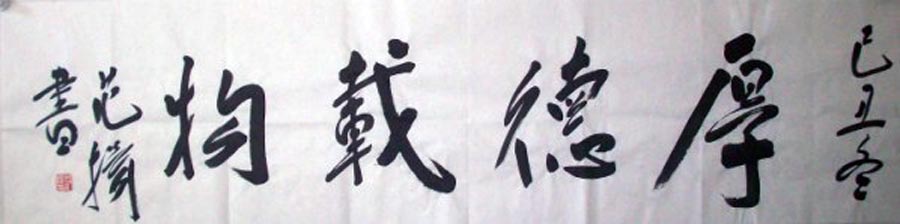 己丑冬
厚德載物
書